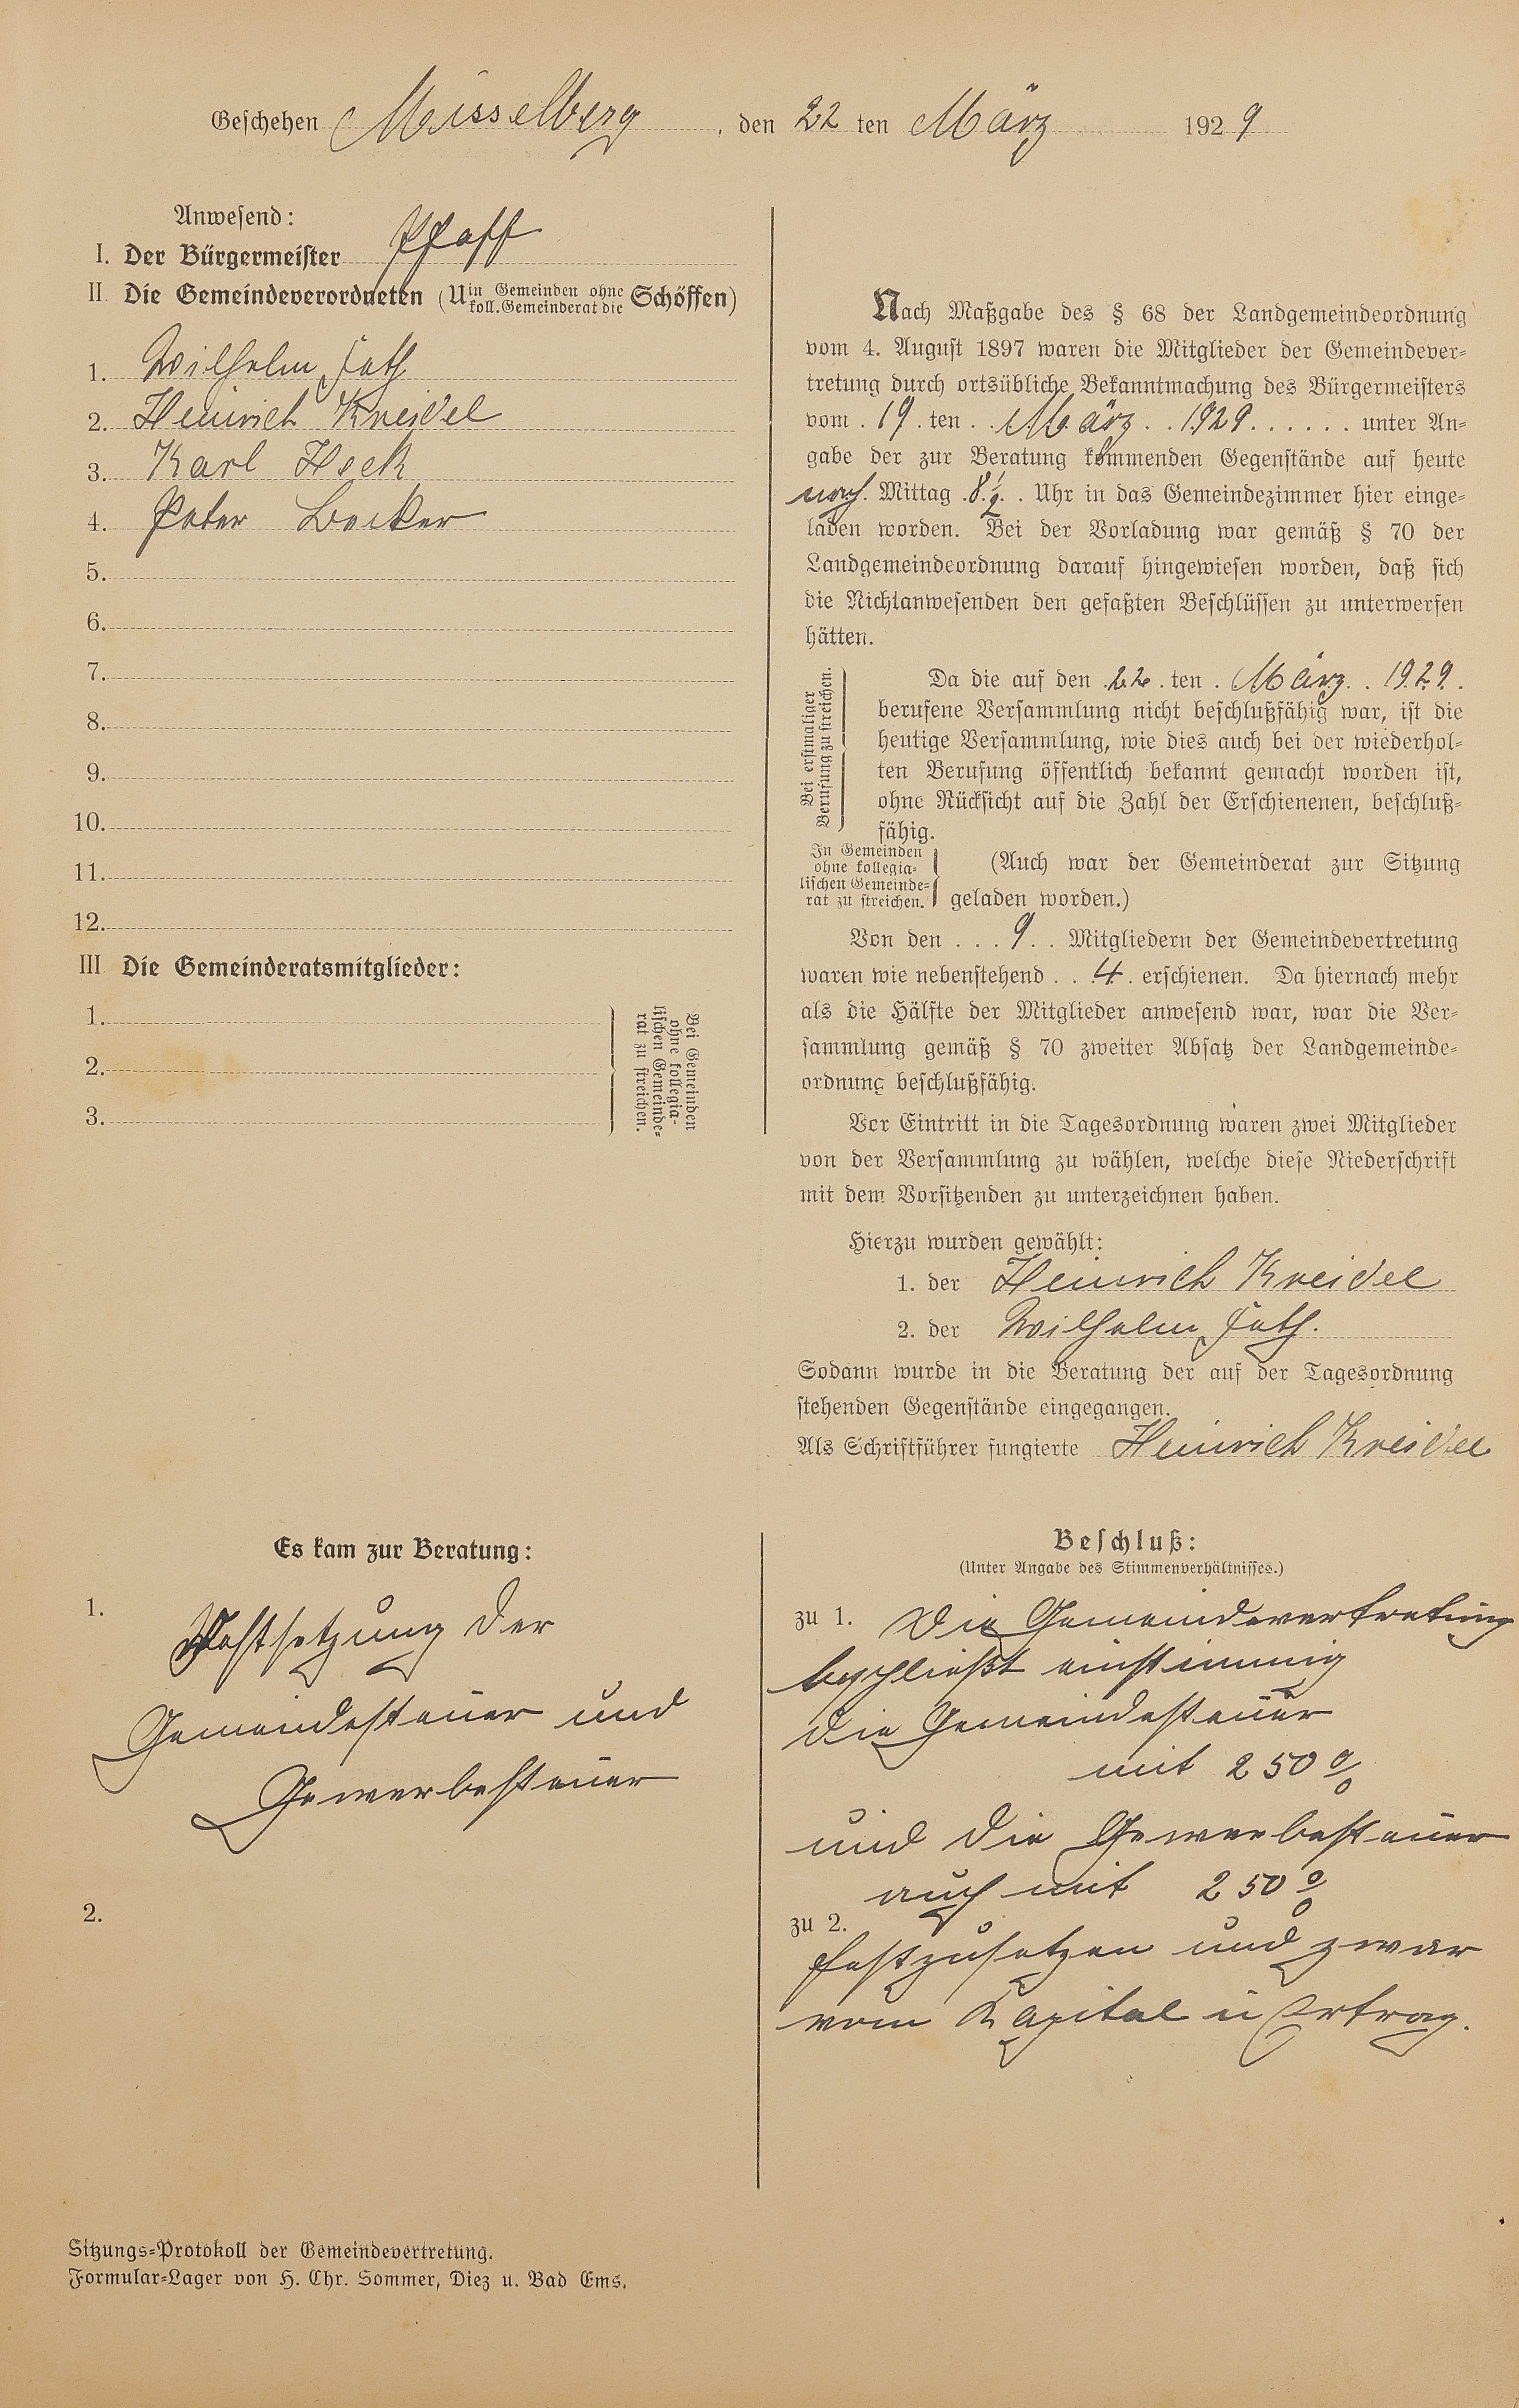 Geschehen Misselberg, den 22 ten März 1929
Anwesend:
I. Der Bürgermeister Pfaff
II. Die Gemeindeverordneten (Uin Gemeinden ohne koll. Gemeinderat die Schöffen)
1. Wilhelm Fath
2. Heinrich Kreidel
3. Karl Heck
4. Peter Becker
5.
6.
7.
8.
9.
10.
11.
12.
III Die Gemeinderatsmitglieder:
1.
2.
3.
Bei Gemeinden
ohne kollegia-
lischen Gemeinde-
rat zu streichen.
Nach Maßgabe des § 68 der Landgemeindeordnung
vom 4. August 1897 waren die Mitglieder der Gemeindever-
tretung durch ortsübliche Bekanntmachung des Bürgermeisters
vom 19. ten März 1929 unter An-
gabe der zur Beratung kommenden Gegenstände auf heute
nach Mittag 8 ½ Uhr in das Gemeindezimmer hier einge-
laden worden. Bei der Vorladung war gemäß § 70 der
Landgemeindeordnung darauf hingewiesen worden, daß sich
die Nichtanwesenden den gefaßten Beschlüssen zu unterwerfen
hätten.
Bei erstmaliger
Berufung zu streichen.
Da die auf den 22. ten März 1929.
berufene Versammlung nicht beschlußfähig war, ist die
heutige Versammlung, wie dies auch bei der wiederhol-
ten Berufung öffentlich bekannt gemacht worden ist,
ohne Rücksicht auf die Zahl der Erschienenen, beschluß-
fähig.
In Gemeinden
ohne kollegia-
lischen Gemeinde-
rat zu streichen.
(Auch war der Gemeinderat zur Sitzung
geladen worden.)
Von den 9 Mitgliedern der Gemeindevertretung
waren wie nebenstehend 4 erschienen. Da hiernach mehr
als die Hälfte der Mitglieder anwesend war, war die Ver-
sammlung gemäß § 70 zweiter Absatz der Landgemeinde-
ordnung beschlußfähig.
Vor Eintritt in die Tagesordnung waren zwei Mitglieder
von der Versammlung zu wählen, welche diese Niederschrift
mit dem Vorsitzenden zu unterzeichnen haben.
Hierzu wurden gewählt:
1. der Heinrich Kreidel
2. der Wilhelm Fath.
Sodann wurde in die Beratung der auf der Tagesordnung
stehenden Gegenstände eingegangen.
Als Schriftführer fungierte Heinrich Kreidel
Es kam zur Beratung:
1. Festsetzung der
Gemeindesteuer und
Gewerbesteuer
2.
Beschluß:
(Unter Angabe des Stimmenverhältnisses.)
zu 1. Die Gemeindevertretung
beschließt einstimmig
die Gemeindesteuer
mit 250 %
und die Gewerbesteuer
auch mit 250 %
zu 2.
festzusetzen und zwar
vom Kapital u Ertrag.
Sitzungs-Protokoll der Gemeindevertretung.
Formular-Lager von H. Chr. Sommer, Diez u. Bad Ems.